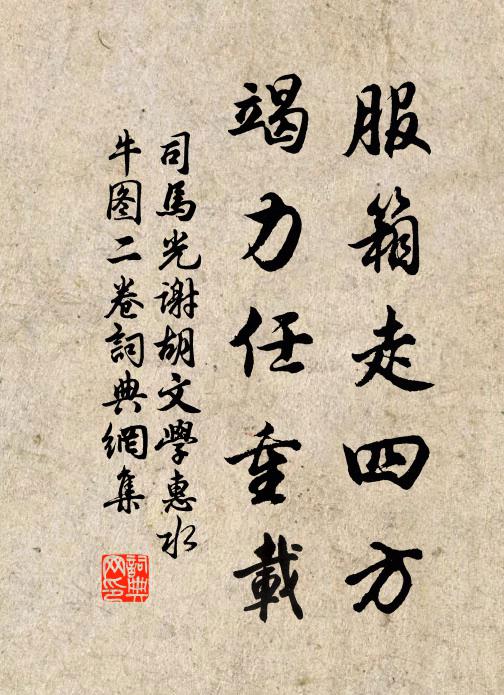 服箱走四方
竭力任重載
司馬光謝胡文學惠水
牛图二卷詞典網集
詞典
网印